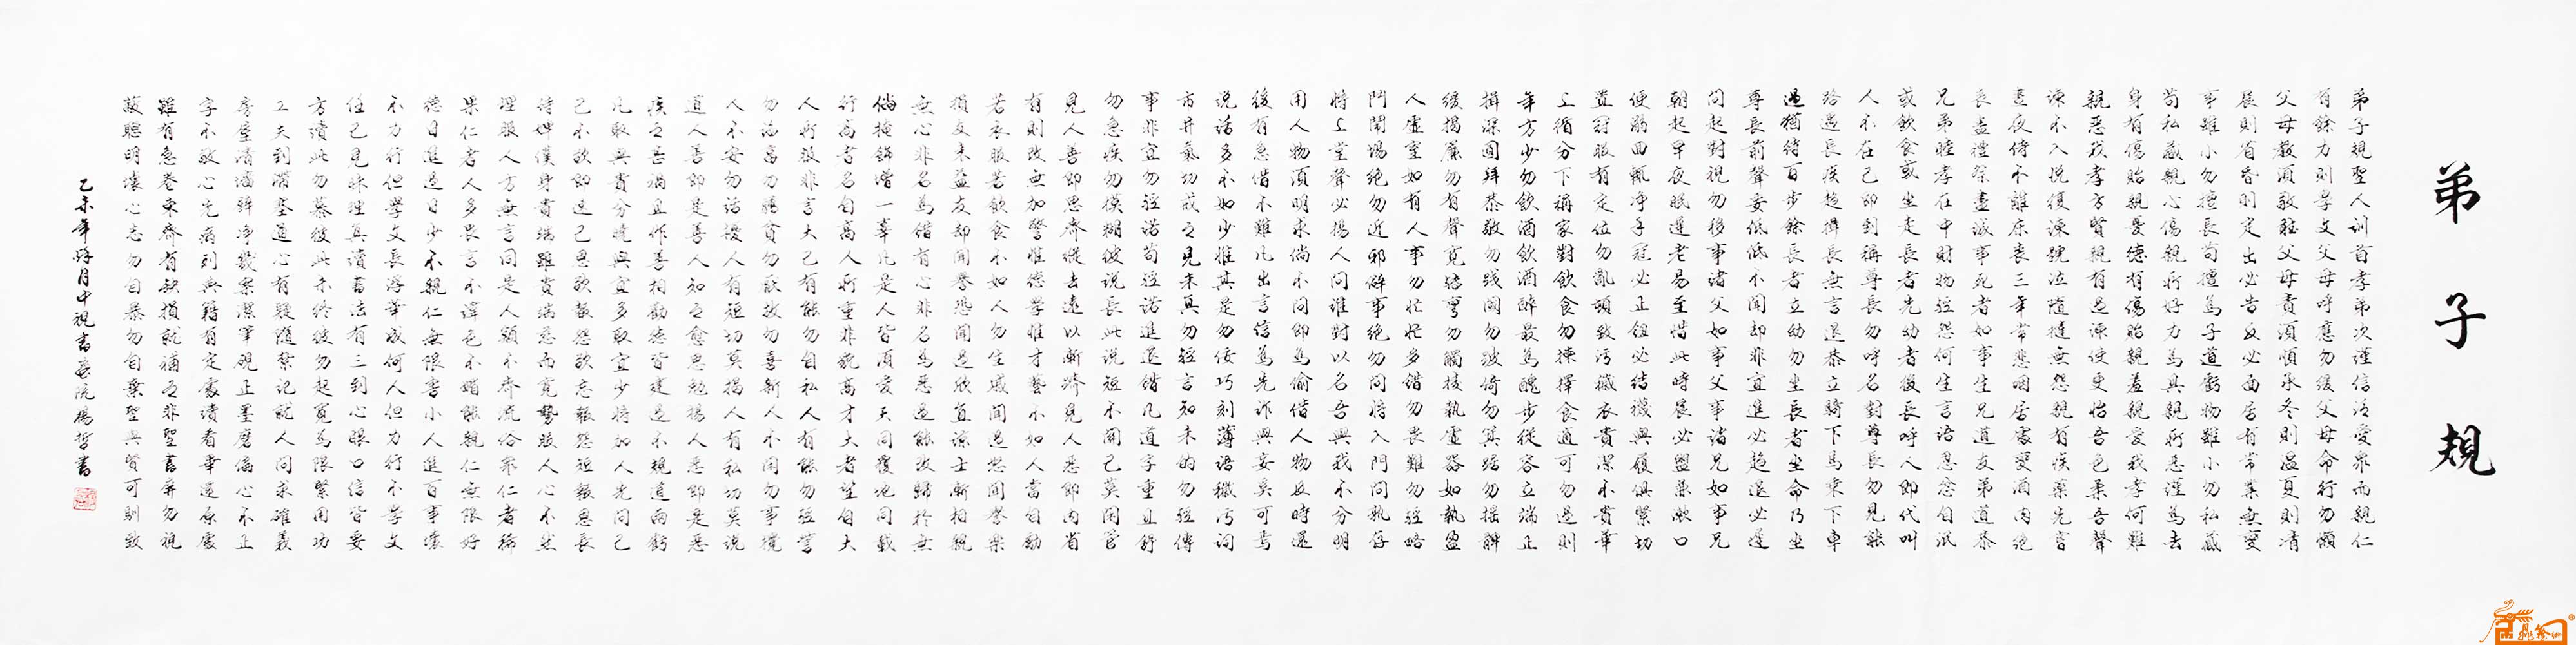 弟子規
弟子規聖人訓首孝弟次謹信汎愛衆而親仁
有餘力則學文父母呼應勿緩父母命行勿懶
父母教須敬聽父母責須順承冬則溫夏則凊
晨則省昏則定出必告反必面居有常業無變
事雖小勿擅爲苟擅爲子道虧物雖小勿私藏
苟私藏親心傷親所好力爲具親所惡謹爲去
身有傷貽親憂德有傷貽親羞親愛我孝何難
親惡我孝方賢親有過諫使更怡吾色柔吾聲
諫不入悅復諫號泣隨撻無怨親有疾藥先嘗
晝夜侍不離床喪三年常悲咽居處變酒肉絕
喪盡禮祭盡誠事死者如事生兄道友弟道恭
兄弟睦孝在中財物輕怨何生言語忍忿自泯
或飲食或坐走長者先幼者後長呼人即代叫
人不在己即到稱尊長勿呼名對尊長勿見能
路遇長疾趨揖長無言退恭立騎下馬乘下車
過猶待百步餘長者立幼勿坐長者坐命乃坐
尊長前聲要低低不聞却非宜進必趨退必遲
問起對視勿移事諸父如事父事諸兄如事兄
朝起早夜眠遲老易至惜此時晨必盥兼漱口
便溺回輒净手冠必正紐必結襪與履俱緊切
置冠服有定位勿亂頓致污穢衣貴潔不貴華
上循分下稱家對飲食勿揀擇食適可勿過則
年方少勿飲酒飲酒醉最爲醜步從容立端正
揖深圓拜恭敬勿踐閾勿跛倚勿箕踞勿搖髀
緩揭簾勿有聲寬轉彎勿觸棱執虛器如執盈
入虛室如有人事勿忙忙多錯勿畏難勿輕略
鬥鬧場絕勿近邪僻事絕勿問將入門問孰存
將上堂聲必揚人問誰對以名吾與我不分明
用人物須明求倘不問即爲偷借人物及時還
後有急借不難凡出言信爲先詐與妄奚可焉
說話多不如少惟其是勿佞巧刻薄語穢污詞
市井氣切戒之見未真勿輕言知未的勿輕傳
事非宜勿輕諾苟輕諾進退錯凡道字重且舒
勿急疾勿模糊彼說長此說短不關己莫閒管
見人善即思齊縱去遠以漸躋見人惡即內省
有則改無加警惟德學惟才藝不如人當自勵
若衣服若飲食不如人勿生慼聞過怒聞譽樂
損友來益友却聞譽恐聞過欣直諒士漸相親
無心非名爲錯有心非名爲惡過能改歸於無
倘掩飾增一辜凡是人皆須愛天同覆地同載
行高者名自高人所重非貌高才大者望自大
人所服非言大己有能勿自私人有能勿輕訾
勿諂富勿驕貧勿厭故勿喜新人不閒勿事攪
人不安勿話擾人有短切莫揭人有私切莫說
道人善即是善人知之愈思勉揚人惡即是惡
疾之甚禍且作善相勸德皆建過不規道兩虧
凡取與貴分曉與宜多取宜少將加人先問己
己不欲即速已恩欲報怨欲忘報怨短報恩長
待婢僕身貴端雖貴端慈而寬勢服人心不然
理服人方無言同是人類不齊流俗衆仁者稀
果仁者人多畏言不諱色不媚能親仁無限好
德日進過日少不親仁無限害小人進百事壞
不力行但學文長浮華成何人但力行不學文
任己見昧理真讀書法有三到心眼口信皆要
方讀此勿慕彼此未終彼勿起寬爲限緊用功
工夫到滯塞通心有疑隨札記就人問求確義
房室清墻壁净几案潔筆硯正墨磨偏心不正
字不敬心先病列典籍有定處讀看畢還原處
雖有急卷束齊有缺損就補之非聖書屏勿視
蔽聰明壞心志勿自暴勿自棄聖與賢可馴致
乙未年月中視書畫院楊哲書